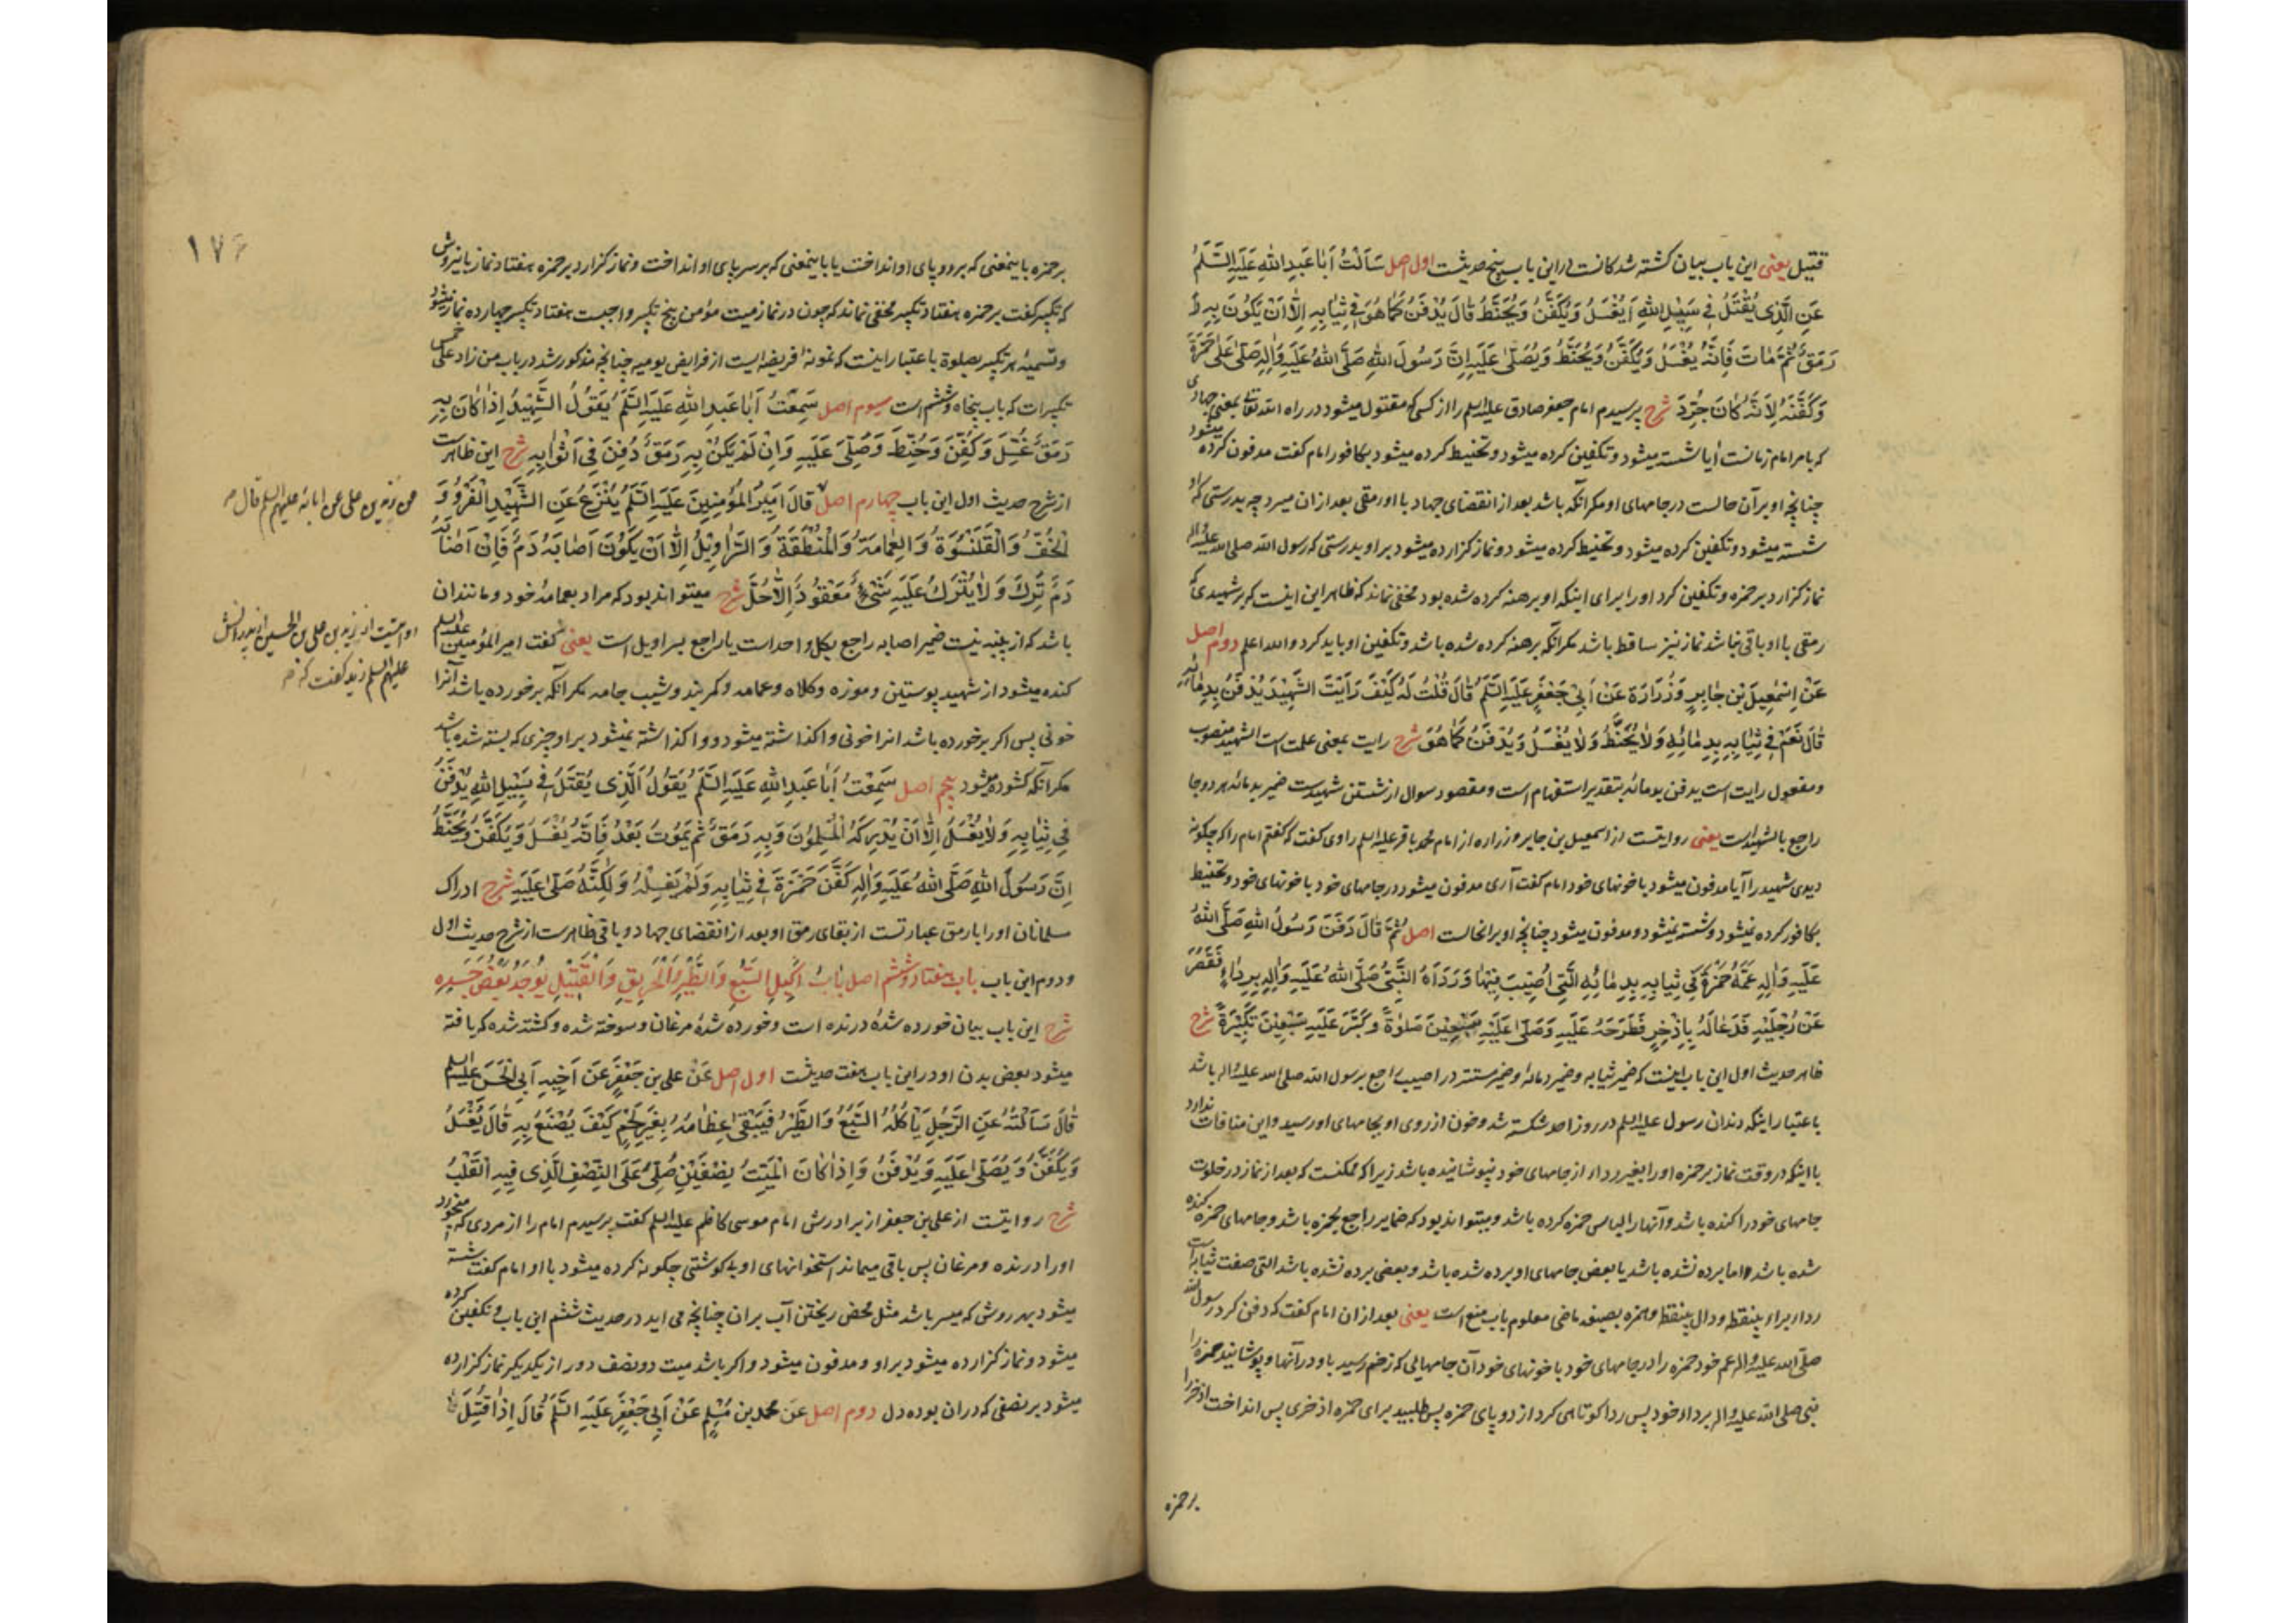 قتیل یعنی این باب بیان کشته شدکانست در این باب پنج حدیثست اول اصل سَاَلْتُ اَبَا عَبْدِ اللّٰهِ عَلَیْهِ السَّلَمُ
عَنِ الَّذِی یُقْتَلُ فِی سَبِیْلِ اللّٰهِ اَیُغْسَلُ وَیُکَفَّنُ وَیُحَنَّطُ قَالَ یُدْفَنُ کَمَا هُوَ فِی ثِیَابِهِ اِلَّا اَنْ یَکُونَ بِهِ
رَمَقٌ ثُمَّ مَاتَ فَاِنَّهُ یُغْسَلُ وَیُکَفَّنُ وَیُحَنَّطُ وَیُصَلّٰی عَلَیْهِ اِنَّ رَسُولَ اللّٰهِ صَلَّی اللّٰهُ عَلَیْهِ وَاٰلِهِ صَلّٰی عَلٰی حَمْزَةَ
وَکَفَّنَهُ لِاَنَّهُ کَانَ جُرِّدَ شرح پرسیدم امام جعفر صادق علیه السلم را از کسی که مقتول میشود در راه الله تعالی بمعنی جهادی
که بامر امام زمانست آیا شسته میشود و تکفین کرده میشود و تحنیط کرده میشود بکافور امام کفت مدفون کرده میشود
چنانچه او بر آن حالست در جامهای او مکر آنکه باشد بعد از انقضای جهاد با او رمقی بعد از ان میرد چه بدرستی که او
شسته میشود و تکفین کرده میشود و تحنیط کرده میشود و نماز کزارده میشود بر او بدرستی که رسول الله صلی الله علیه و اله
نماز کزارد بر حمزه و تکفین کرد او را برای اینکه او برهنه کرده شده بود مخفی نماند که ظاهر این اینست که بر شهیدی که
رمقی با او باقی نباشد نماز نیز ساقط باشد مکر آنکه برهنه کرده شده باشد و تکفین او باید کرد والله اعلم دوم اصل
عَنْ اِسْمٰعِیلَ بْنِ جَابِرٍ وَزُرَارَةَ عَنْ اَبِی جَعْفَرٍ عَلَیْهِ السَّلَمُ قَالَ قُلْتُ لَهُ کَیْفَ رَاَیْتَ الشَّهِیْدَ یُدْفَنُ بِدِمَائِهِ
قَالَ نَعَمْ فِی ثِیَابِهِ بِدِمَائِهِ وَلَا یُحَنَّطُ وَلَا یُغْسَلُ وَیُدْفَنُ کَمَا هُوَ شرح رایت بمعنی علمت است الشهید منصوب
و مفعول رایت است یدفن بدمائه بتقدیر استفهام است و مقصود سوال از شستن شهیدست ضمیر بدمائه هر دو جا
راجع بالشهیدست یعنی روایتست از اسمعیل بن جابر و زراره از امام محمد باقر علیه السلم راوی کفت که کفتم امام را که چکونه
دیدی شهید را آیا مدفون میشود با خونهای خود امام کفت آری مدفون میشود در جامهای خود با خونهای خود و تحنیط
بکافور کرده نمیشود و شسته نمیشود و مدفون میشود چنانچه او بر انحالست اصل ثُمَّ قَالَ دَفَنَ رَسُولُ اللّٰهِ صَلَّی اللّٰهُ
عَلَیْهِ وَاٰلِهِ عَمَّهُ حَمْزَةَ فِی ثِیَابِهِ بِدِمَائِهِ الَّتِی اُصِیْبَ فِیْهَا وَرَدَاَهُ النَّبِیُّ صَلَّی اللّٰهُ عَلَیْهِ وَاٰلِهِ بِرِدَاءٍ فَقَصُرَ
عَنْ رِجْلَیْهِ فَدَعَا لَهُ بِاِذْخِرٍ فَطَرَحَهُ عَلَیْهِ وَصَلّٰی عَلَیْهِ سَبْعِیْنَ صَلٰوةً وَکَبَّرَ عَلَیْهِ سَبْعِیْنَ تَکْبِیْرَةً شرح
ظاهر حدیث اول این باب اینست که ضمیر ثیابه و ضمیر دمائه و ضمیر مستتر در اصیب راجع برسول الله صلی الله علیه و اله باشد
باعتبار اینکه دندان رسول علیه السلم در روز احد شکسته شد و خون از روی او بجامهای او رسید و این منافات ندارد
با اینکه در وقت نماز بر حمزه او را بغیر رداء از جامهای خود نپوشانیده باشد زیرا که ممکنست که بعد از نماز در خلوت
جامهای خود را کنده باشد و آنها را لباس حمزه کرده باشد و میتواند بود که ضمایر راجع بحمزه باشد و جامهای حمزه کنده
شده باشد اما برده نشده باشد یا بعض جامهای او برده شده باشد و بعضی برده نشده باشد التی صفت ثیابست
رداء براء بینقطه و دال بینقطه و همزه بصیغه ماضی معلوم باب منع است یعنی بعد از ان امام کفت که دفن کرد رسول الله
صلی الله علیه و اله عم خود حمزه را در جامهای خود با خونهای خود آن جامهایی که زخم رسید باو در آنها و پوشانید حمزه را
نبی صلی الله علیه و اله برداء خود پس ردا کوتاهی کرد از دو پای حمزه پس طلبید برای حمزه اذخری پس انداخت اذخر را
بر حمزه
۱۷۶
بر حمزه باینمعنی که بر دو پای او انداخت یا باینمعنی که بر سر پای او انداخت و نماز کزارد بر حمزه هفتاد نماز باینروش
که تکبیر کفت بر حمزه هفتاد تکبیر مخفی نماند که چون در نماز میت مؤمن پنج تکبیر واجبست هفتاد تکبیر چهارده نماز میشود
و تسمیهٔ هر تکبیر بصلوة باعتبار اینست که نمونهٔ فریضه ایست از فرایض یومیه چنانچه مذکور شد در باب من زاد علی خمس
تکبیرات که باب پنجاه و ششم است سیوم اصل سَمِعْتُ اَبَا عَبْدِ اللّٰهِ عَلَیْهِ السَّلَمُ یَقُولُ الشَّهِیْدُ اِذَا کَانَ بِهِ
رَمَقٌ غُسِّلَ وَکُفِّنَ وَحُنِّطَ وَصُلِّیَ عَلَیْهِ وَاِنْ لَمْ یَکُنْ بِهِ رَمَقٌ دُفِنَ فِی اَثْوَابِهِ شرح این ظاهرست
از شرح حدیث اول این باب چهارم اصل قَالَ اَمِیْرُ الْمُؤْمِنِیْنَ عَلَیْهِ السَّلَمُ یُنْزَعُ عَنِ الشَّهِیْدِ الْفَرْوُ وَ
الْخُفُّ وَالْقَلَنْسُوَةُ وَالْعِمَامَةُ وَالْمِنْطَقَةُ وَالسَّرَاوِیْلُ اِلَّا اَنْ یَکُوْنَ اَصَابَهُ دَمٌ فَاِنْ اَصَابَهُ
دَمٌ تُرِکَ وَلَا یُتْرَکُ عَلَیْهِ شَیْءٌ مَعْقُودٌ اِلَّا حُلَّ شرح میتواند بود که مراد بعمامه خود و مانند ان
باشد که از پنبه نیست ضمیر اصابه راجع بکل واحد است یا راجع بسراویل است یعنی کفت امیر المؤمنین علیه السلم
کنده میشود از شهید پوستین و موزه و کلاه و عمامه و کمربند و شیب جامه مکر آنکه برخورده باشد آنرا
خونی پس اکر برخورده باشد انرا خونی واکذاشته میشود و واکذاشته نمیشود بر او چیزی که بسته شده باشد
مکر آنکه کشوده میشود پنجم اصل سَمِعْتُ اَبَا عَبْدِ اللّٰهِ عَلَیْهِ السَّلَمُ یَقُولُ الَّذِی یُقْتَلُ فِی سَبِیْلِ اللّٰهِ یُدْفَنُ
فِی ثِیَابِهِ وَلَا یُغْسَلُ اِلَّا اَنْ یُدْرِکَهُ الْمُسْلِمُونَ وَبِهِ رَمَقٌ ثُمَّ یَمُوْتُ بَعْدُ فَاِنَّهُ یُغْسَلُ وَیُکَفَّنُ وَیُحَنَّطُ
اِنَّ رَسُولَ اللّٰهِ صَلَّی اللّٰهُ عَلَیْهِ وَاٰلِهِ کَفَّنَ حَمْزَةَ فِی ثِیَابِهِ وَلَمْ یَغْسِلْهُ وَلٰکِنَّهُ صَلّٰی عَلَیْهِ شرح ادراک
مسلمانان او را با رمق عبارتست از بقای رمق او بعد از انقضای جهاد و باقی ظاهرست از شرح حدیث اول
و دوم این باب باب هفتاد و ششم اصل بَابُ اَکِیْلِ السَّبُعِ وَالطَّیْرِ وَالْحَرِیْقِ وَالْقَتِیْلِ یُوْجَدُ بَعْضُ جَسَدِهِ
شرح این باب بیان خورده شدهٔ درنده است و خورده شدهٔ مرغان و سوخته شده و کشته شده که یافته
میشود بعض بدن او در این باب هفت حدیثست اول اصل عَنْ علی بن جَعْفَرٍ عَنْ اَخِیْهِ اَبِی الْحَسَنِ علیه السلم
قَالَ سَاَلْتُهُ عَنِ الرَّجُلِ یَاْکُلُهُ السَّبُعُ وَالطَّیْرُ فَیَبْقٰی عِظَامُهُ بِغَیْرِ لَحْمٍ کَیْفَ یُصْنَعُ بِهِ قَالَ یُغْسَلُ
وَیُکَفَّنُ وَیُصَلّٰی عَلَیْهِ وَیُدْفَنُ وَاِذَا کَانَ الْمَیِّتُ نِصْفَیْنِ صُلِّیَ عَلَی النِّصْفِ الَّذِی فِیْهِ الْقَلْبُ
شرح روایتست از علی بن جعفر از برادرش امام موسی کاظم علیه السلم کفت پرسیدم امام را از مردی که میخورد
او را درنده و مرغان پس باقی میماند استخوانهای او بی کوشتی چکونه کرده میشود با او امام کفت شسته
میشود بهر روش که میسر باشد مثل محض ریختن آب بر ان چنانچه می اید در حدیث ششم این باب و تکفین کرده
میشود و نماز کزارده میشود بر او و مدفون میشود و اکر باشد میت دو نصف دور از یکدیکر نماز کزارده
میشود بر نصفی که در ان بوده دل دوم اصل عَنْ محمد بن مُسْلِمٍ عَنْ اَبِی جَعْفَرٍ عَلَیْهِ السَّلَمُ قَالَ اِذَا قُتِلَ
عن زید بن علی عن ابائه علیهم السلم قال
روایتست از زید بن علی بن الحسین از پدرانش
علیهم السلم زید کفت که